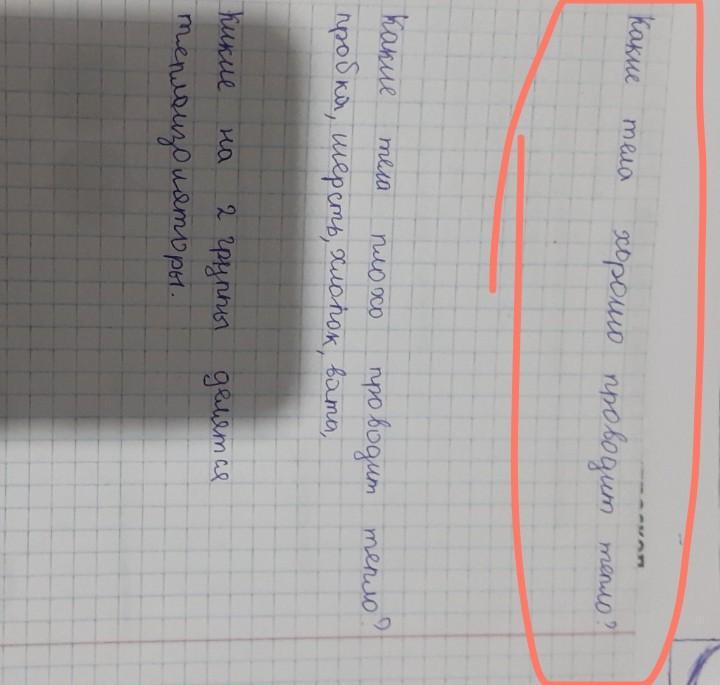 Какие тела хорошо проводит тепло?
Какие тела плохо проводит тепло?
пробка, шерсть, хлопок, вата,
Какие на 2 группы делятся
теплоизоляторы.